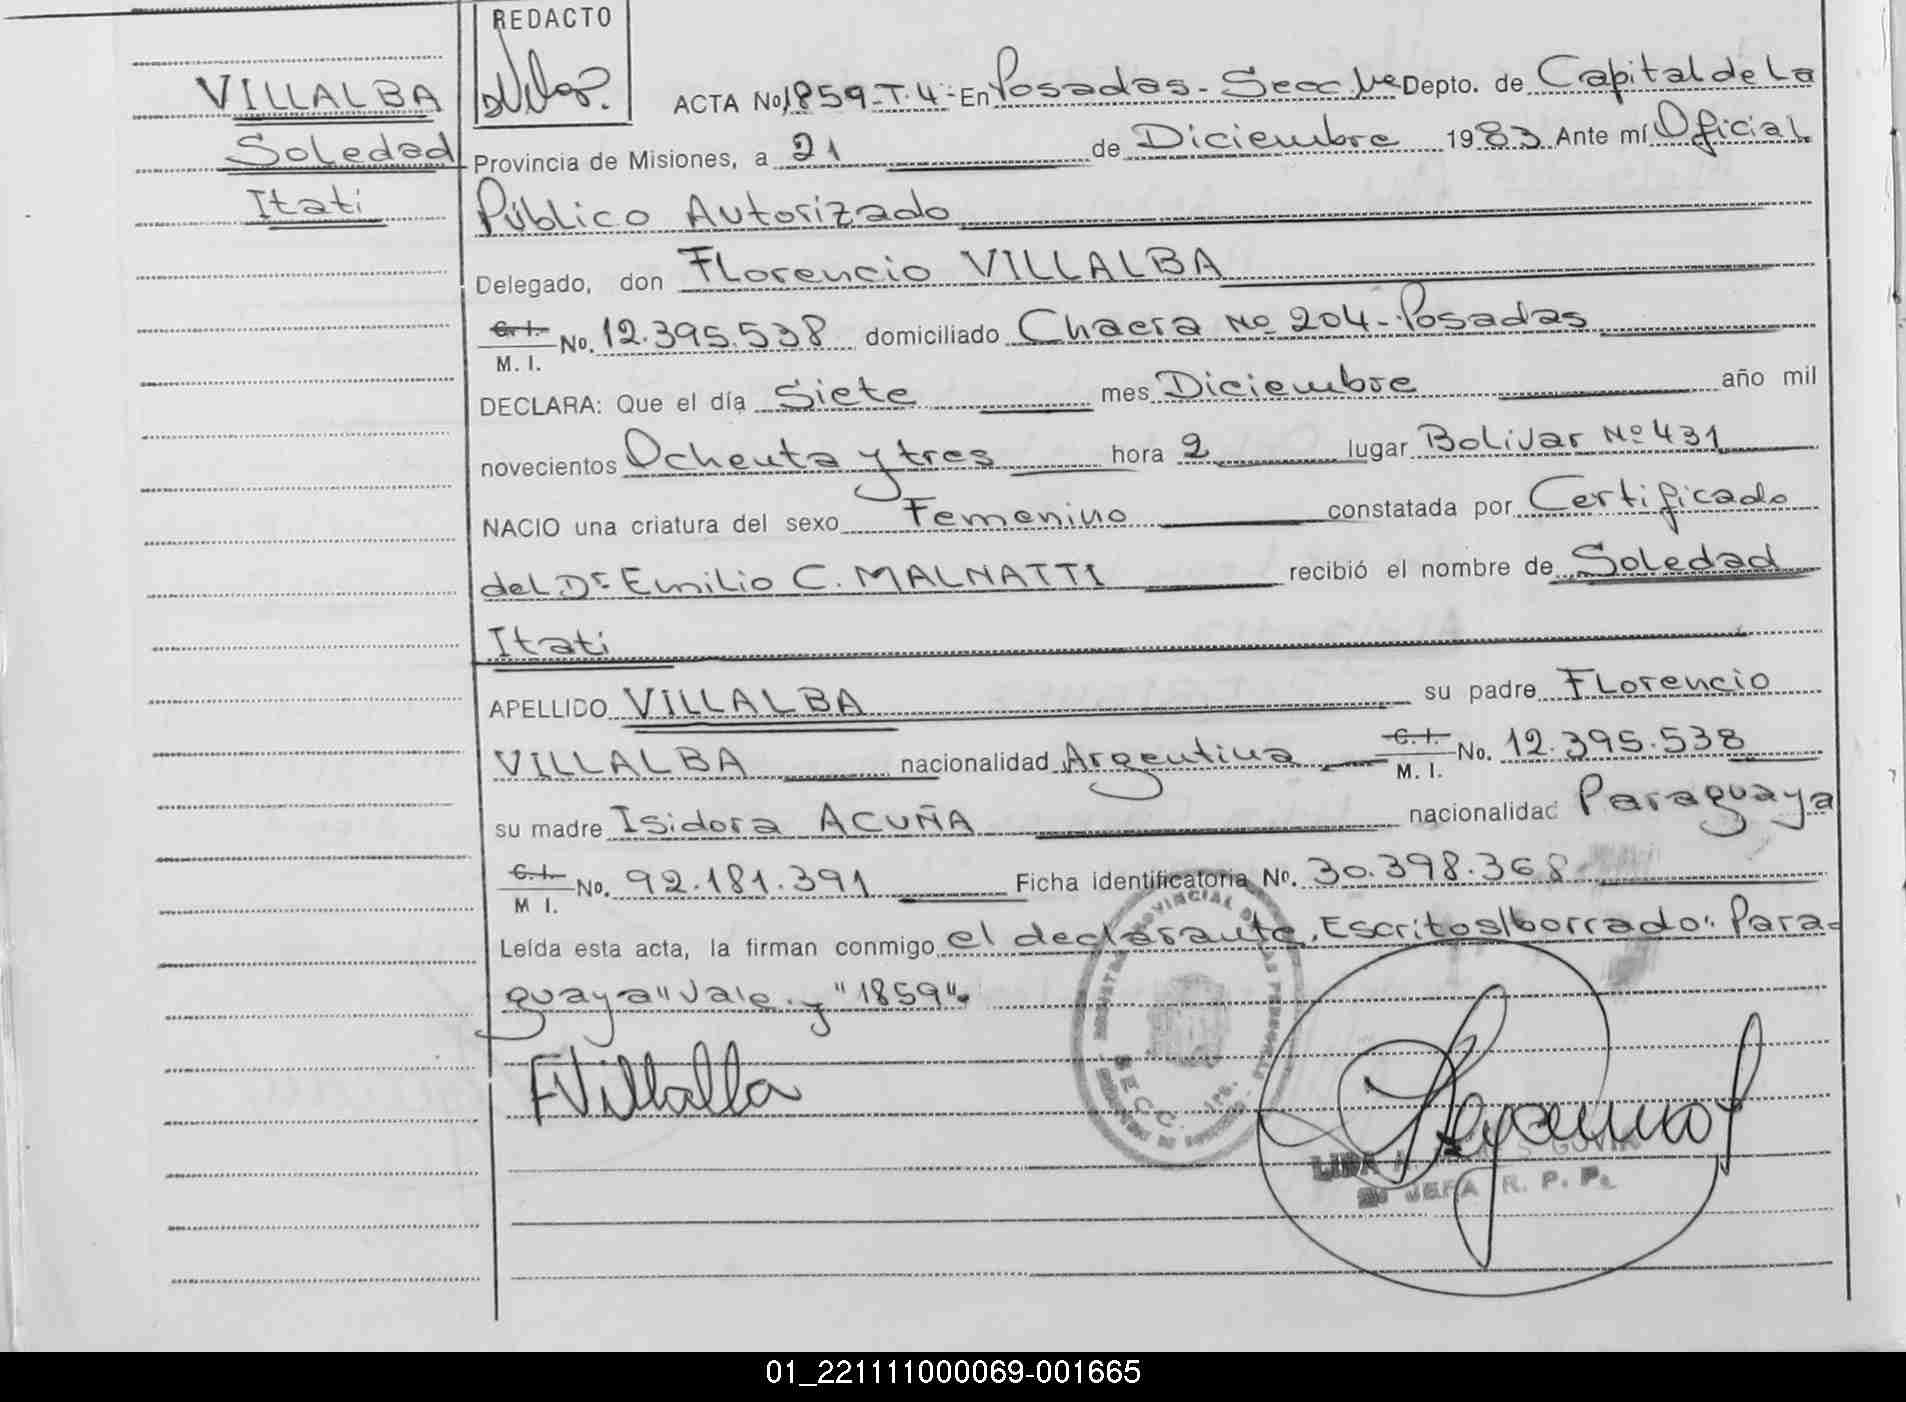 REDACTO
VILLALBA
Soledad
Itati
ACTA No 1859-T.4- En Posadas - Secc. 1ra Depto. de Capital de La
Provincia de Misiones, a 21 de Diciembre 1983 Ante mí Oficial
Público Autorizado
Delegado, don Florencio VILLALBA
C. I. M. I. No. 12.395.538 domiciliado Chacra No 204 - Posadas
DECLARA: Que el día Siete mes Diciembre año mil
novecientos Ochenta y tres hora 2 lugar Bolivar Nº 431
NACIO una criatura del sexo Femenino constatada por Certificado
del Dr Emilio C. MALNATTI recibió el nombre de Soledad
Itati
APELLIDO VILLALBA su padre Florencio
VILLALBA nacionalidad Argentina C. I. M. I. No. 12.395.538
su madre Isidora ACUÑA nacionalidad Paraguaya
C. I. M I. No. 92.181.391 Ficha identificatoria No. 30.398.368
Leída esta acta, la firman conmigo el declarante. Escritos/borrado: "Para-
guaya" Vale. y "1859".
FVillalba
SECC. 1RA.
JEFA R. P. P.
01_221111000069-001665